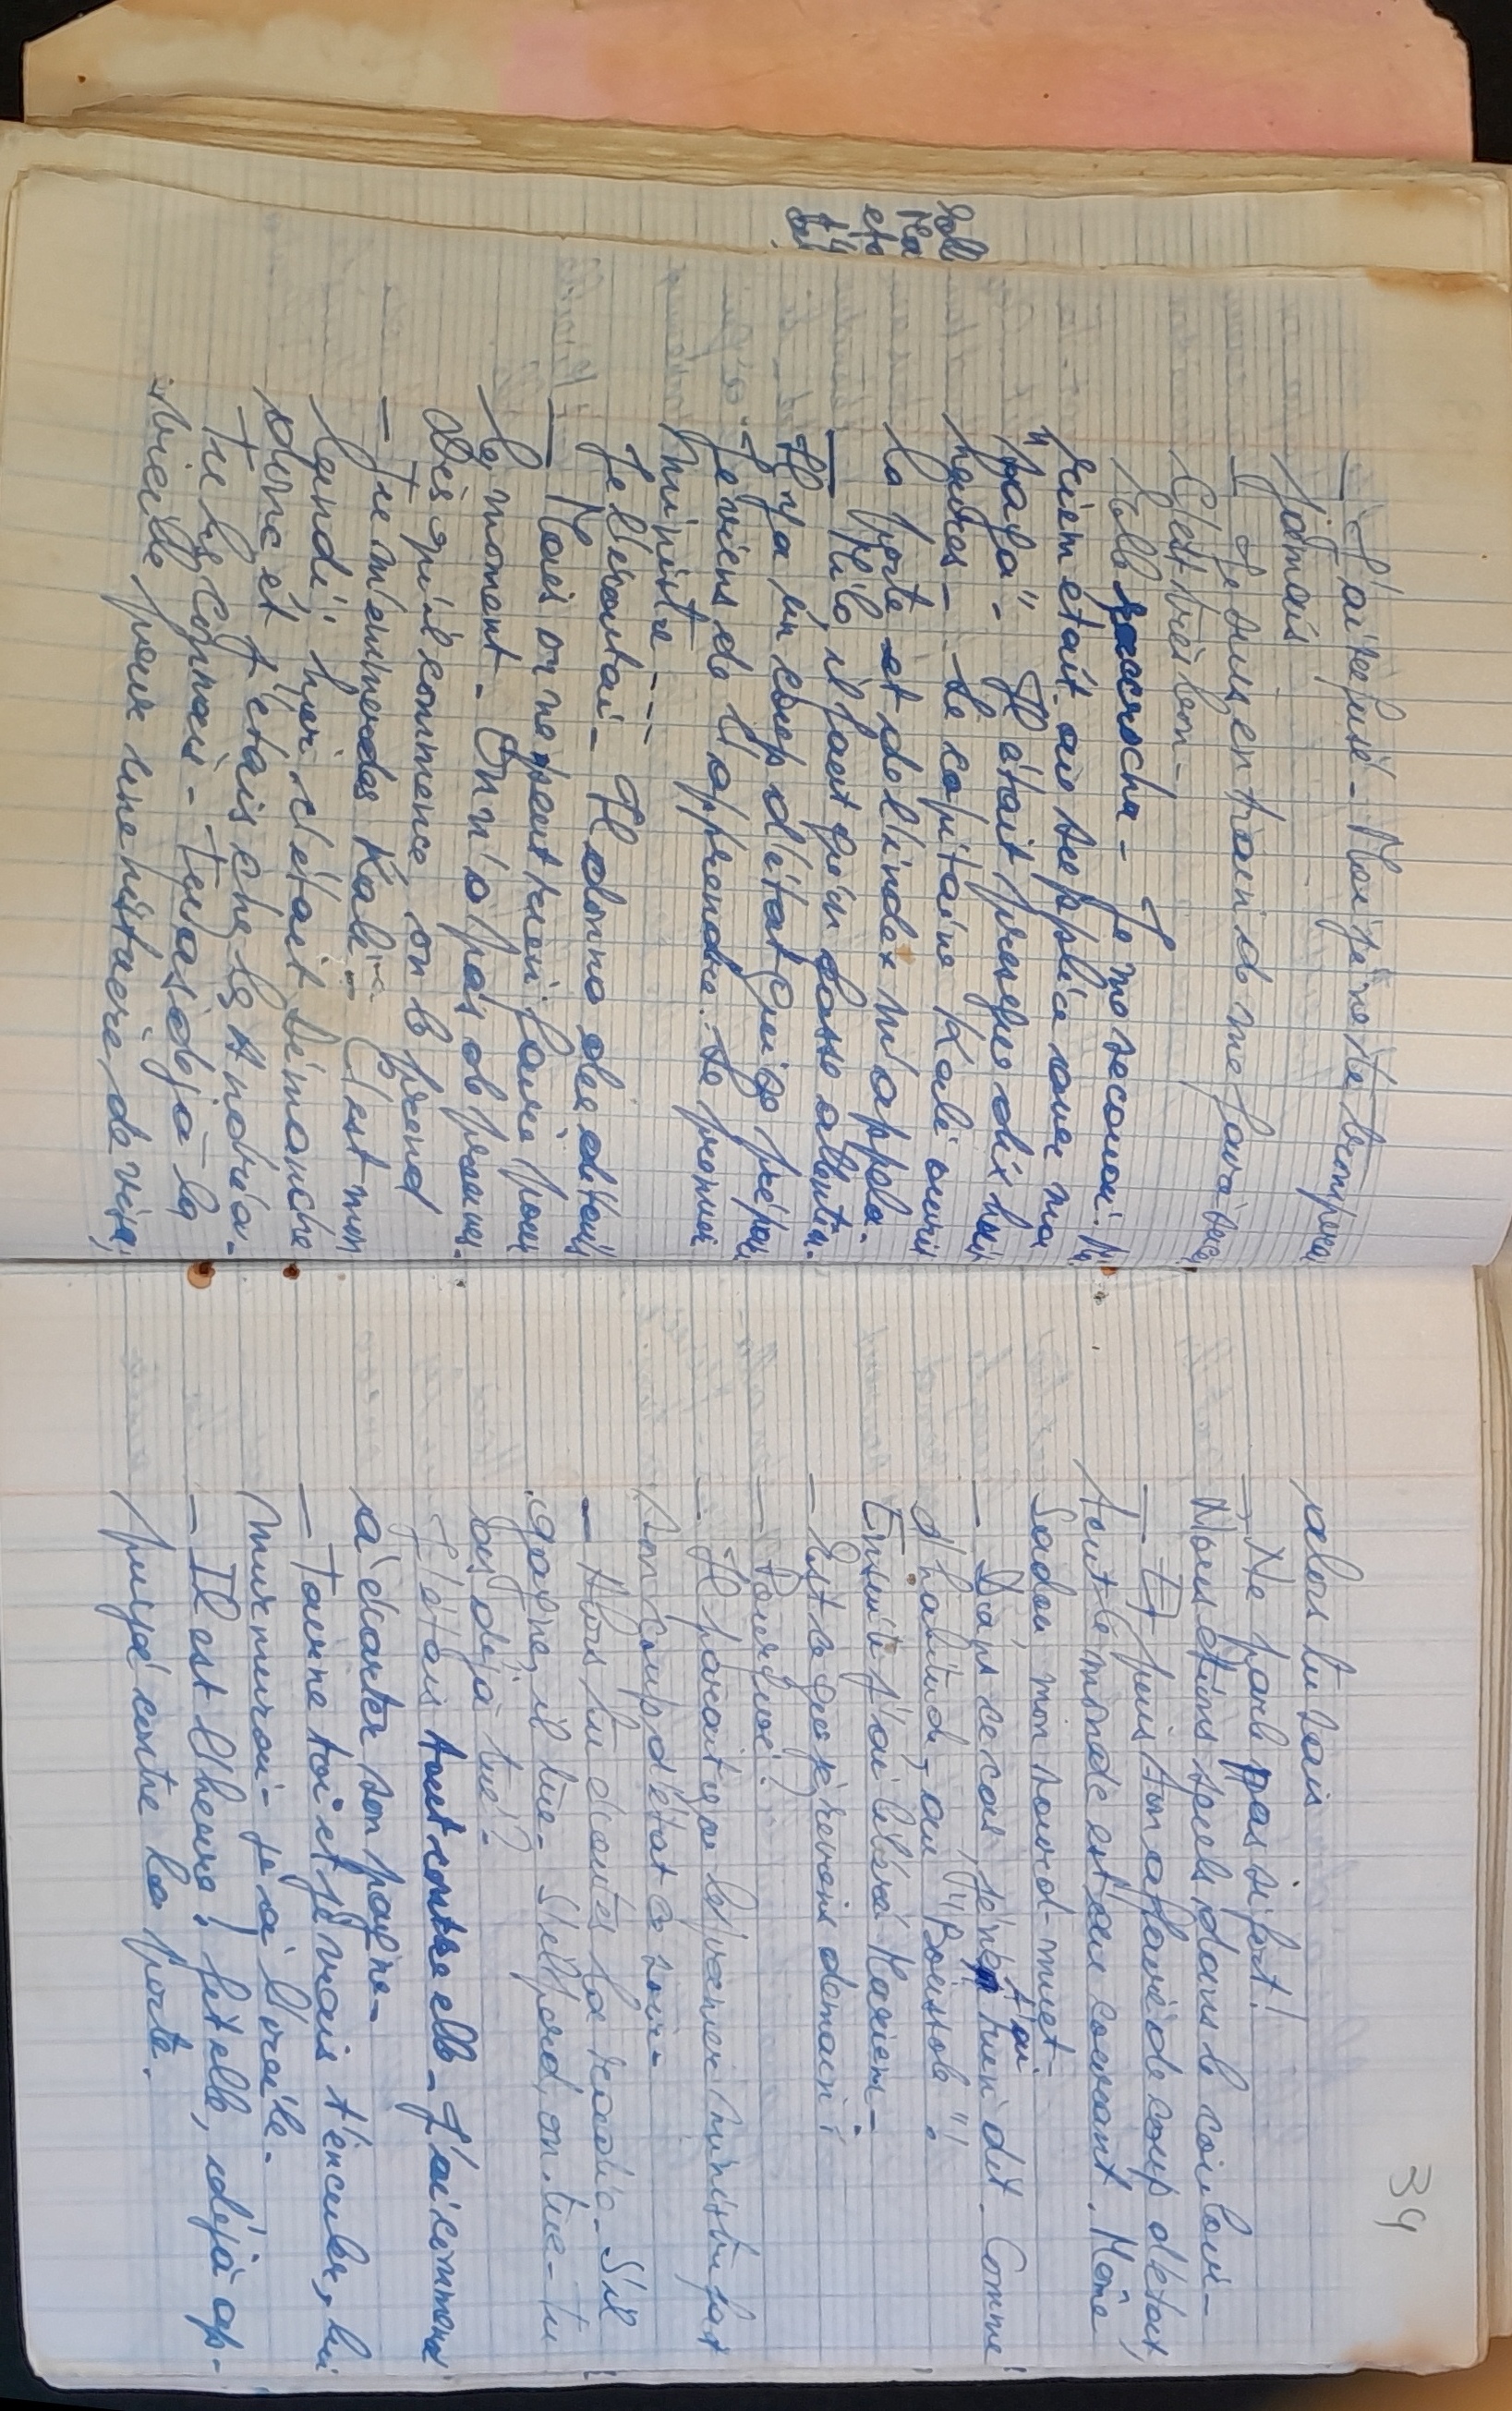 — J'ai refusé. Moi je ne te tromperai
jamais
— Je suis entrain de me faire
C'est très bon.
Elle raccrocha. Je me secouai.
Siem était au supplice sans ma
"gaga". Il était presque dix huit
heures. Le capitaine Kali ouvrit
la porte et de l'index m'appela.
— Milo, il faut qu'on fasse attention.
Il y a un coup d'état qui se prépare
Je viens de l'apprendre. Le premier
ministre ---
Je l'écoutai. Il donna des détails
— Mais on ne peut rien faire pour
le moment. On n'a pas de preuves.
Dès qu'il commence, on le prend
— Tu m'emmerdes Kali. C'est mon
lundi, hier c'était dimanche
donc et j'étais chez les Andria-
Tu les connais. Tu as déjà la
vieille pour une héritière, devina,
39
alors tu sais
— Ne parle pas si fort!
Nous étions seuls dans le couloir.
— Et puis ton affaire de coup d'état,
tout le monde est au courant. Même
Sadou, mon sourd-muet.
— Dans ce cas, je n'ai rien dit. Comme
d'habitude, au "Boussole".
Ensuite j'ai libéré Mariem.
— Est ce que je reviens demain?
— Pourquoi?
— Il parait que le premier ministre fait
son coup d'état ce soir.
— Alors tu écoutes la radio. S'il
gagne, il tue. S'il perd, on tue. Tu
as déjà tué?
J'étais tout contre elle. J'ai commencé
à écarter son pagne.
— Tourne toi et je vais t'enculer, lui
murmurai-je à l'oreille.
— Il est l'heure! fit elle, déjà ap-
puyé contre la porte.